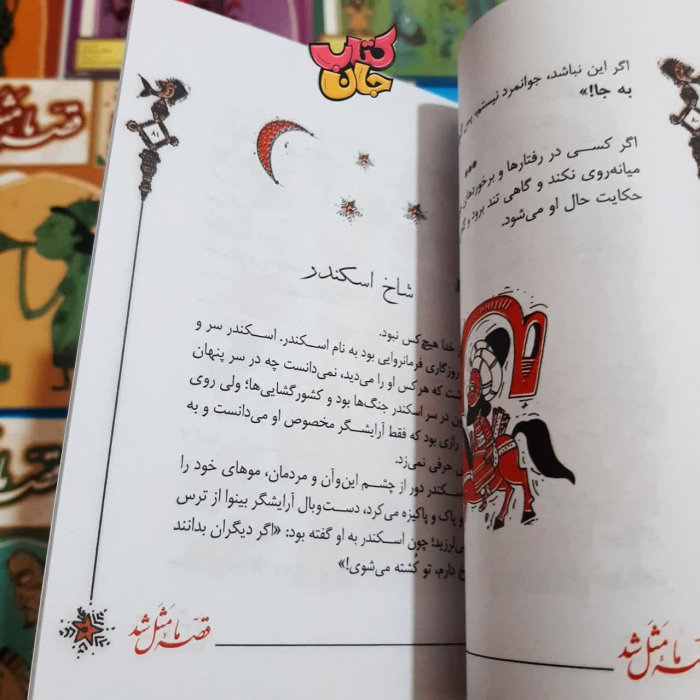 کتاب
جان
اگر این نباشد، جوانمرد نیستم، پس
به جا!»
***
اگر کسی در رفتارها و برخوردهای
میانه‌روی نکند و گاهی تند برود و
حکایت حال او می‌شود.
قصه ما مثل شد
۸۱
شاخ اسکندر
خدا هیچ‌کس نبود.
روزگاری فرمانروایی بود به نام اسکندر. اسکندر سر و
که هرکس او را می‌دید، نمی‌دانست چه در سر پنهان
در سر اسکندر جنگ‌ها بود و کشورگشایی‌ها؛ ولی روی
رازی بود که فقط آرایشگر مخصوص او می‌دانست و به
حرفی نمی‌زد.
اسکندر دور از چشم این‌وآن و مردمان، موهای خود را
و پاک و پاکیزه می‌کرد، دست‌وبال آرایشگر بینوا از ترس
می‌لرزید؛ چون اسکندر به او گفته بود: «اگر دیگران بدانند
دارم، تو کشته می‌شوی!»
قصه ما مثل شد